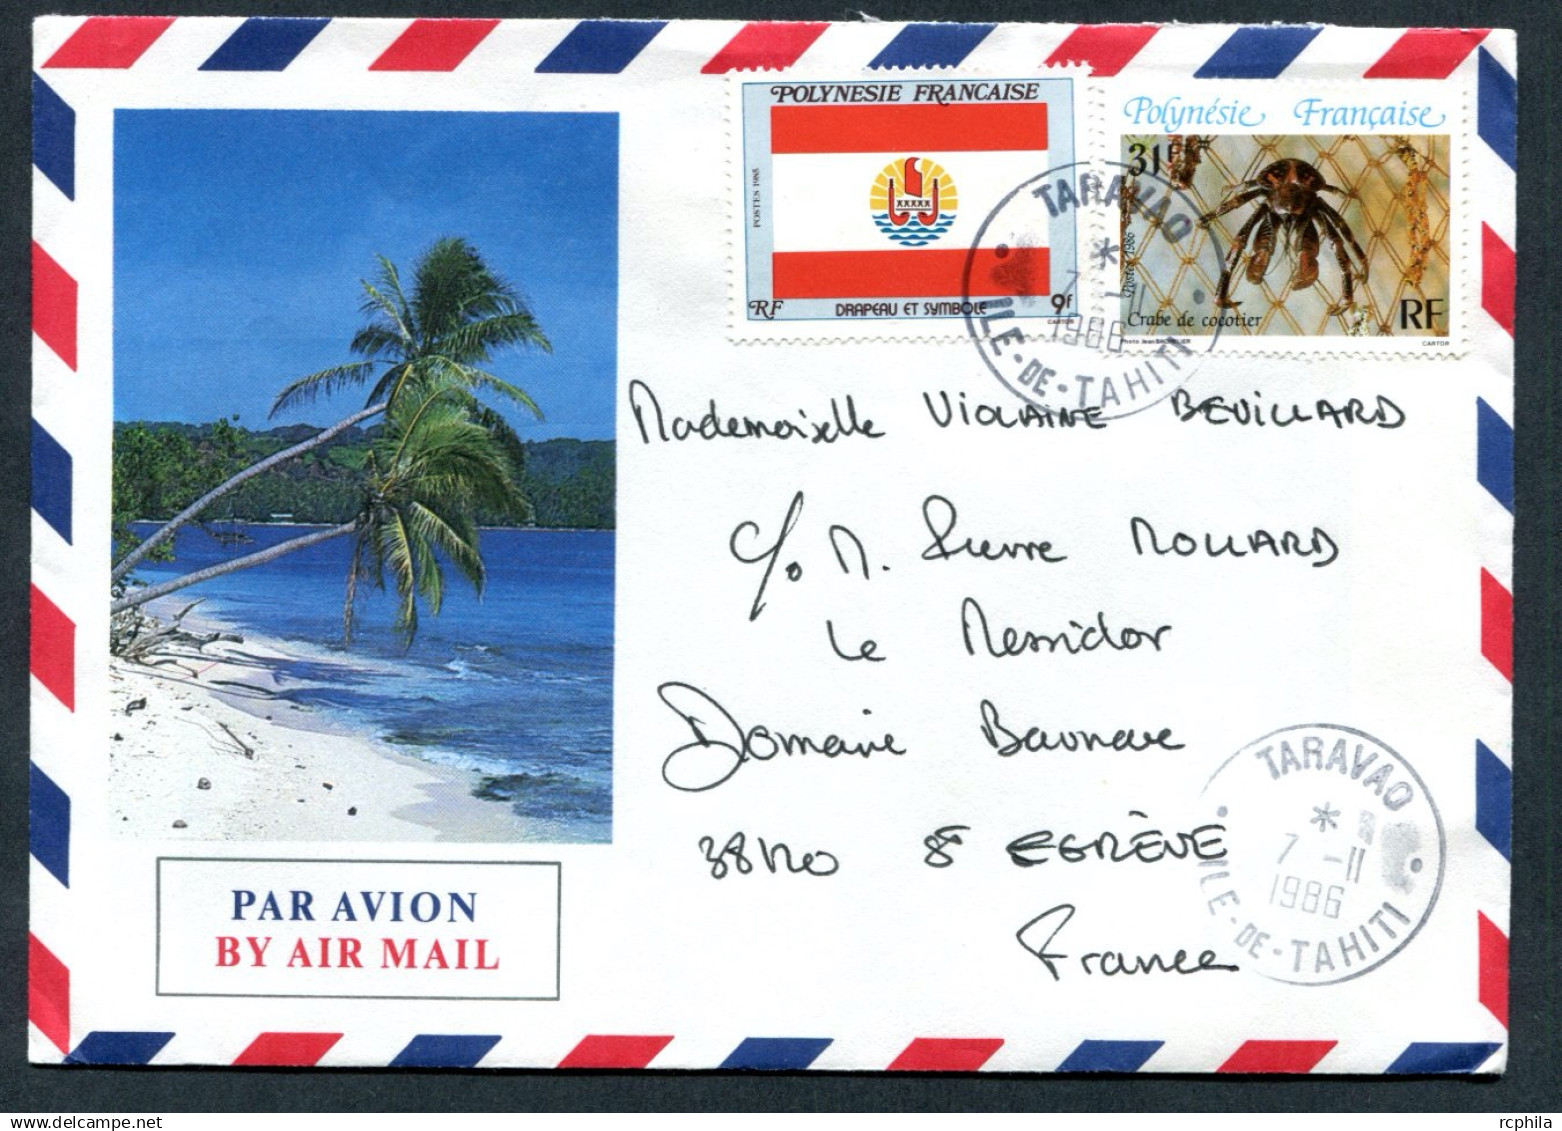 POLYNESIE FRANCAISE
POSTES 1985
RF DRAPEAU ET SYMBOLE 9f
CARTOR
Polynésie Française
31F
Postes 1986
Crabe de cocotier RF
Photo Jean CARTOR
TARAVAO
* 7 -11
1986
ILE-DE-TAHITI
Mademoiselle VIOLAINE BEVILLARD
c/o M. Pierre MOLLARD
Le Messidor
Domaine
38120 St EGRÈVE
France
TARAVAO
*
7 -11
1986
ILE-DE-TAHITI
PAR AVION
BY AIR MAIL
rcphila